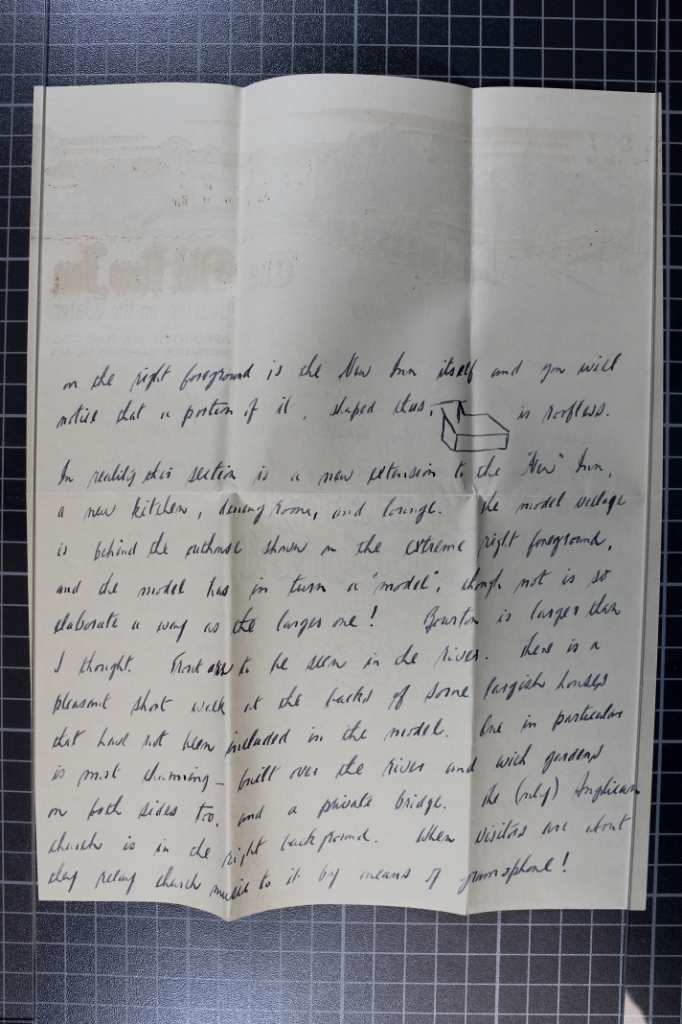 on the right foreground is the New Inn itself and you will
notice that a portion of it, shaped thus, is roofless.
In reality this section is a new extension to the "New" Inn,
a new kitchen, dining room, and lounge. The model village
is behind the outhouse shown on the extreme right foreground,
and the model has in turn a "model", though not is so
elaborate a way as the larger one! Bourton is larger than
I thought. Trout are to be seen in the river. There is a
pleasant short walk at the backs of some largish houses
that have not been included in the model. One in particular
is most charming - built over the river and with gardens
on both sides too, and a private bridge. The (only) Anglican
church is in the right background. When visitors are about
they relay church music to it by means of gramophone!